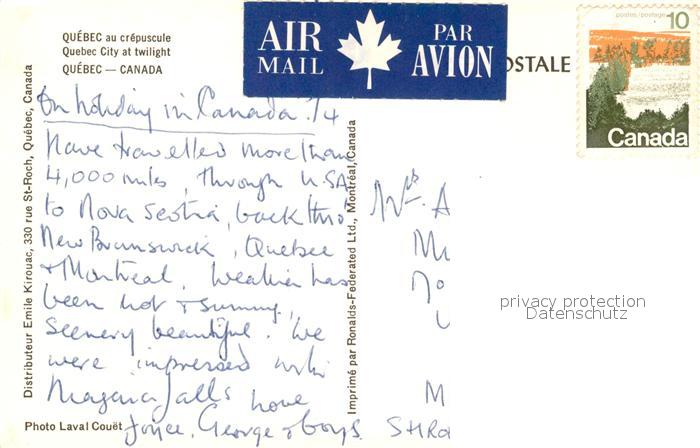 QUÉBEC au crépuscule
Quebec City at twilight
QUÉBEC — CANADA
AIR MAIL
PAR AVION
OSTALE
postes/postage 10
Canada
On holiday in Canada
Have travelled more than
4,000 miles, through U.S.A
to Nova Scotia, back thro
New Brunswick, Quebec
& Montreal. Weather has
been hot & sunny,
Scenery beautiful. We
were impressed with
Niagara Falls love
Joyce, George & boys.
Distributeur Emile Kirouac, 330 rue St-Roch, Québec, Canada
Imprimé par Ronalds-Federated Ltd., Montréal, Canada
Photo Laval Couët
M
privacy protection
Datenschutz